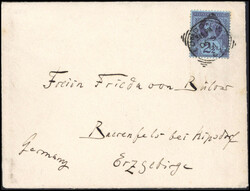 2½
Freiin Frieda von Bülow
Baerenfels bei Kipsdorf
Germany
Erzgebirge